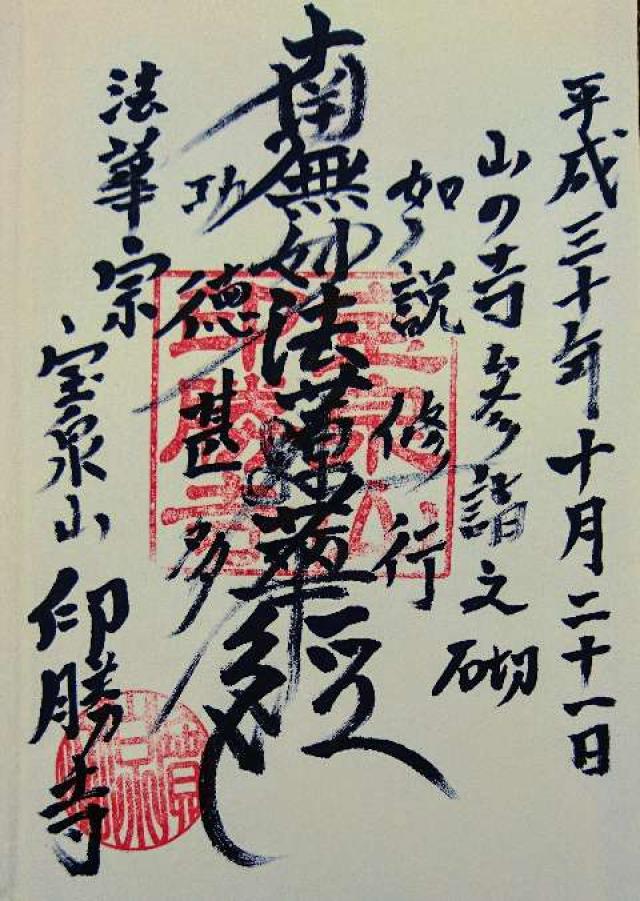 平成三十年十月二十一日
山の寺参詣之砌
如説修行
南無妙法蓮華経
功徳甚多
法華宗
宝泉山
印勝寺
宝泉山
印勝寺